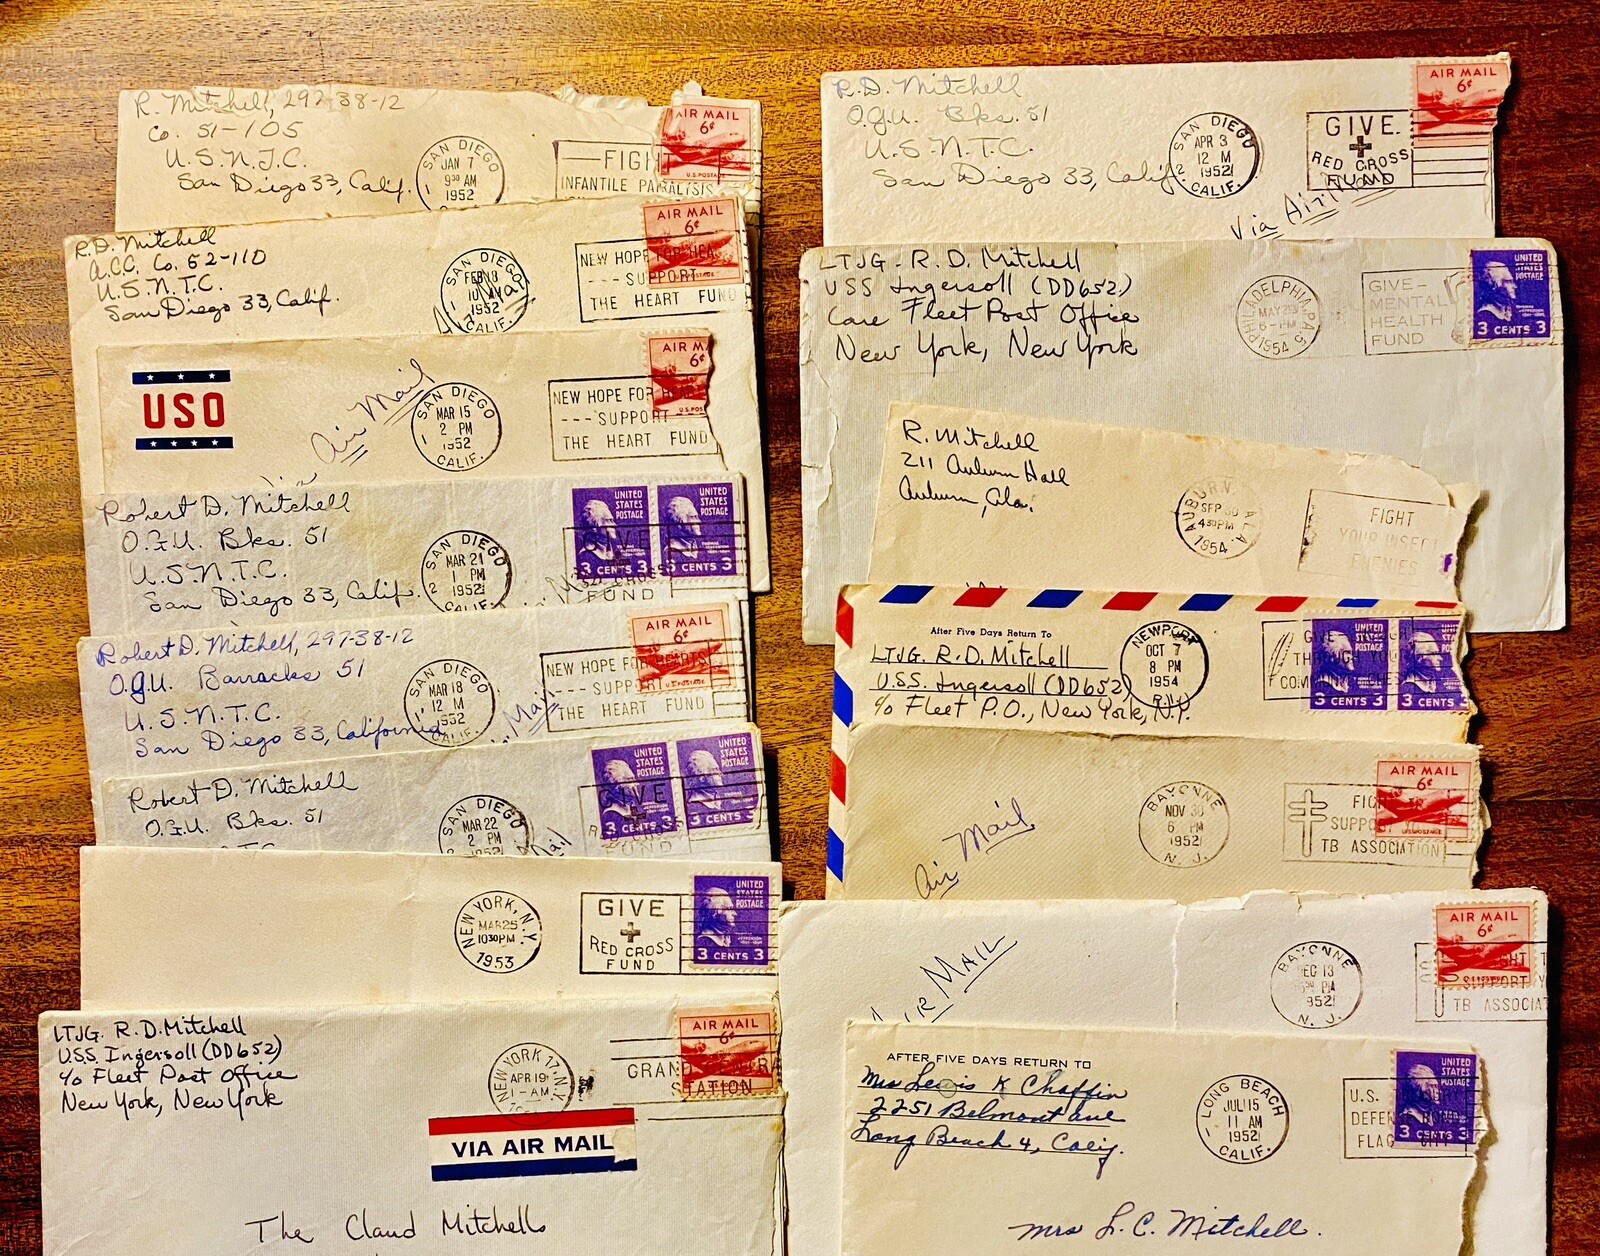 R. Mitchell, 297-38-12
Co. 51-105
U.S.N.T.C.
San Diego 33, Calif.
SAN DIEGO
JAN 7
9 30 AM
1952
1
FIGHT
INFANTILE PARALYSIS
AIR MAIL
6¢
U.S. POSTAGE
R.D. Mitchell
A.C.C. Co. 52-110
U.S.N.T.C.
San Diego 33, Calif.
SAN DIEGO
FEB 18
10 AM
1952
1 CALIF.
NEW HOPE FOR HEA
--- SUPPORT
THE HEART FUND
AIR MAIL
6¢
POSTAGE
USO
Air Mail
SAN DIEGO
MAR 15
2 PM
1952
1 CALIF.
NEW HOPE FOR HEAR
--- SUPPORT
THE HEART FUND
AIR MA
6¢
U.S. POS
Robert D. Mitchell
O.G.U. Bks. 51
U.S.N.T.C.
San Diego 33, Calif.
SAN DIEGO
MAR 21
1 PM
1952
2 CALIF.
GIVE
RED CROSS
FUND
UNITED
STATES
POSTAGE
3 CENTS 3
UNITED
STATES
POSTAGE
3 CENTS 3
Robert D. Mitchell, 297-38-12
O.G.U. Barracks 51
U.S.N.T.C.
San Diego 33, California
SAN DIEGO
MAR 18
12 M
1952
1 CALIF.
Mail
NEW HOPE FOR HEARTS
--- SUPPORT
THE HEART FUND
AIR MAIL
6¢
U.S. POSTAGE
Robert D. Mitchell
O.G.U. Bks. 51
SAN DIEGO
MAR 22
2 PM
1952
GIVE
RED CROSS
FUND
UNITED
STATES
POSTAGE
3 CENTS 3
UNITED
STATES
POSTAGE
3 CENTS 3
NEW YORK, N.Y.
MAR 25
10 30 PM
1953
GIVE
RED CROSS
FUND
UNITED
STATES
POSTAGE
3 CENTS 3
LTJG. R.D. Mitchell
USS. Ingersoll (DD652)
c/o Fleet Post Office
New York, New York
NEW YORK 17, N.Y.
APR 19
1-AM
GRAND CENTRA
STATION
AIR MAIL
6¢
VIA AIR MAIL
The Claud Mitchells
R.D. Mitchell
O.G.U. Bks. 51
U.S.N.T.C.
San Diego 33, Calif.
SAN DIEGO
APR 3
12 M
1952
2 CALIF.
GIVE
RED CROSS
FUND
AIR MAIL
6¢
Via Air Mail
LTJG - R. D. Mitchell
USS Ingersoll (DD652)
Care Fleet Post Office
New York, New York
PHILADELPHIA, PA. 5
MAY
6-PM
1954
GIVE-
MENTAL
HEALTH
FUND
UNITED
STATES
POSTAGE
3 CENTS 3
R. Mitchell
211 Auburn Hall
Auburn, Ala.
AUBURN
ALA.
SEP 30
4 30 PM
1954
FIGHT
YOUR INSECT
ENEMIES
After Five Days Return To
LTJG. R.D. Mitchell
U.S.S. Ingersoll (DD652)
c/o Fleet P.O., New York, N.Y.
NEWPORT
OCT 7
8 PM
1954
R.I.
GIVE
THROUGH YOU
COMMUNITY CHES
UNITED
STATES
POSTAGE
3 CENTS 3
UNITED
STATES
POSTAGE
3 CENTS 3
Air Mail
BAYONNE
NOV 30
6 PM
1952
N. J.
FIGHT TB
SUPPORT YOU
TB ASSOCIATION
AIR MAIL
6¢
U.S. POSTAGE
AIR MAIL
BAYONNE
DEC 13
PM
1952
N. J.
FIGHT T
SUPPORT Y
TB ASSOCIAT
AIR MAIL
6¢
AFTER FIVE DAYS RETURN TO
Mrs Lewis K Chaffin
2251 Belmont ave
Long Beach 4, Calif.
LONG BEACH
JUL 15
11 AM
1952
CALIF.
U.S.
DEFENSE BOND
FLAG CITY
UNITED
STATES
POSTAGE
3 CENTS 3
Mrs L. C. Mitchell.